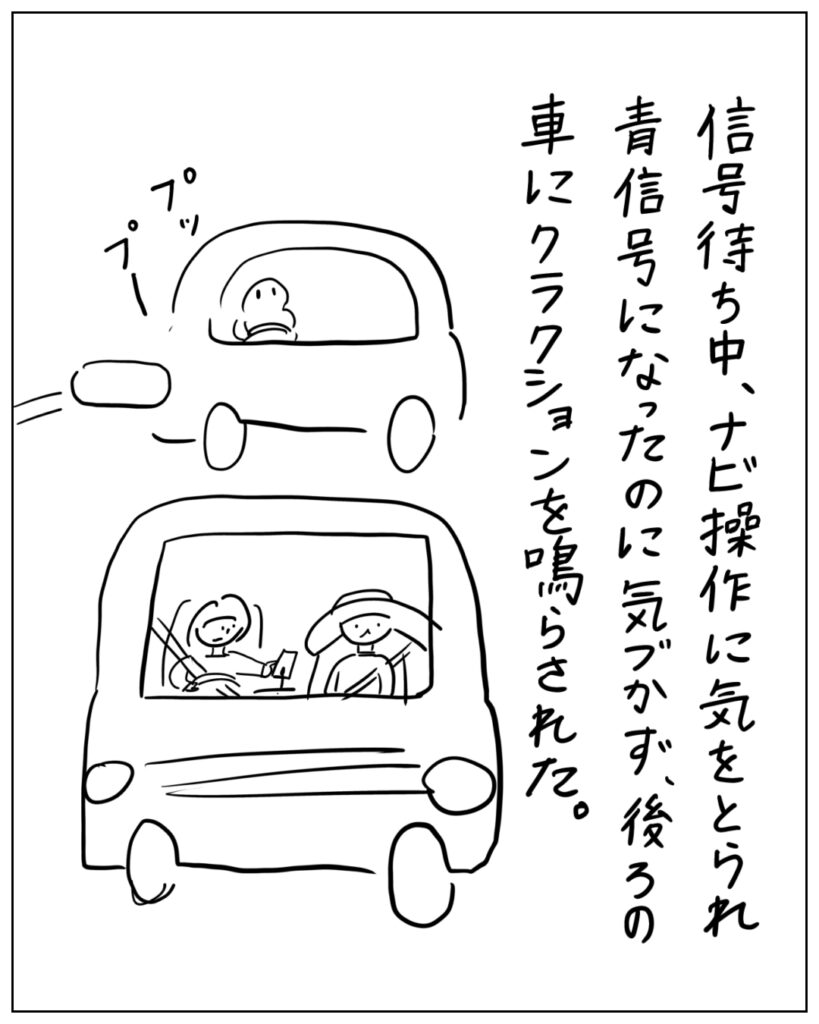 信号待ち中、ナビ操作に気をとられ
青信号になったのに気づかず、後ろの
車にクラクションを鳴らされた。
プップー